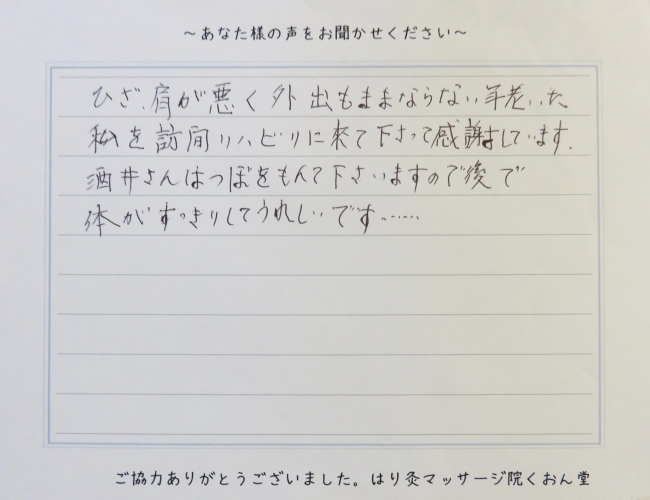 ～あなた様の声をお聞かせください～
ひざ、肩が悪く外出もままならない年老いた
私を訪問リハビリに来て下さって感謝しています。
酒井さんはつぼをもんで下さいますので後で
体がすっきりしてうれしいです……
ご協力ありがとうございました。はり灸マッサージ院くおん堂